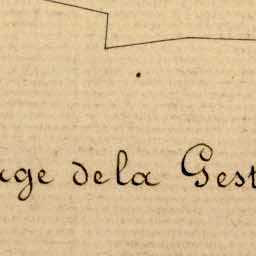 age de la Gest